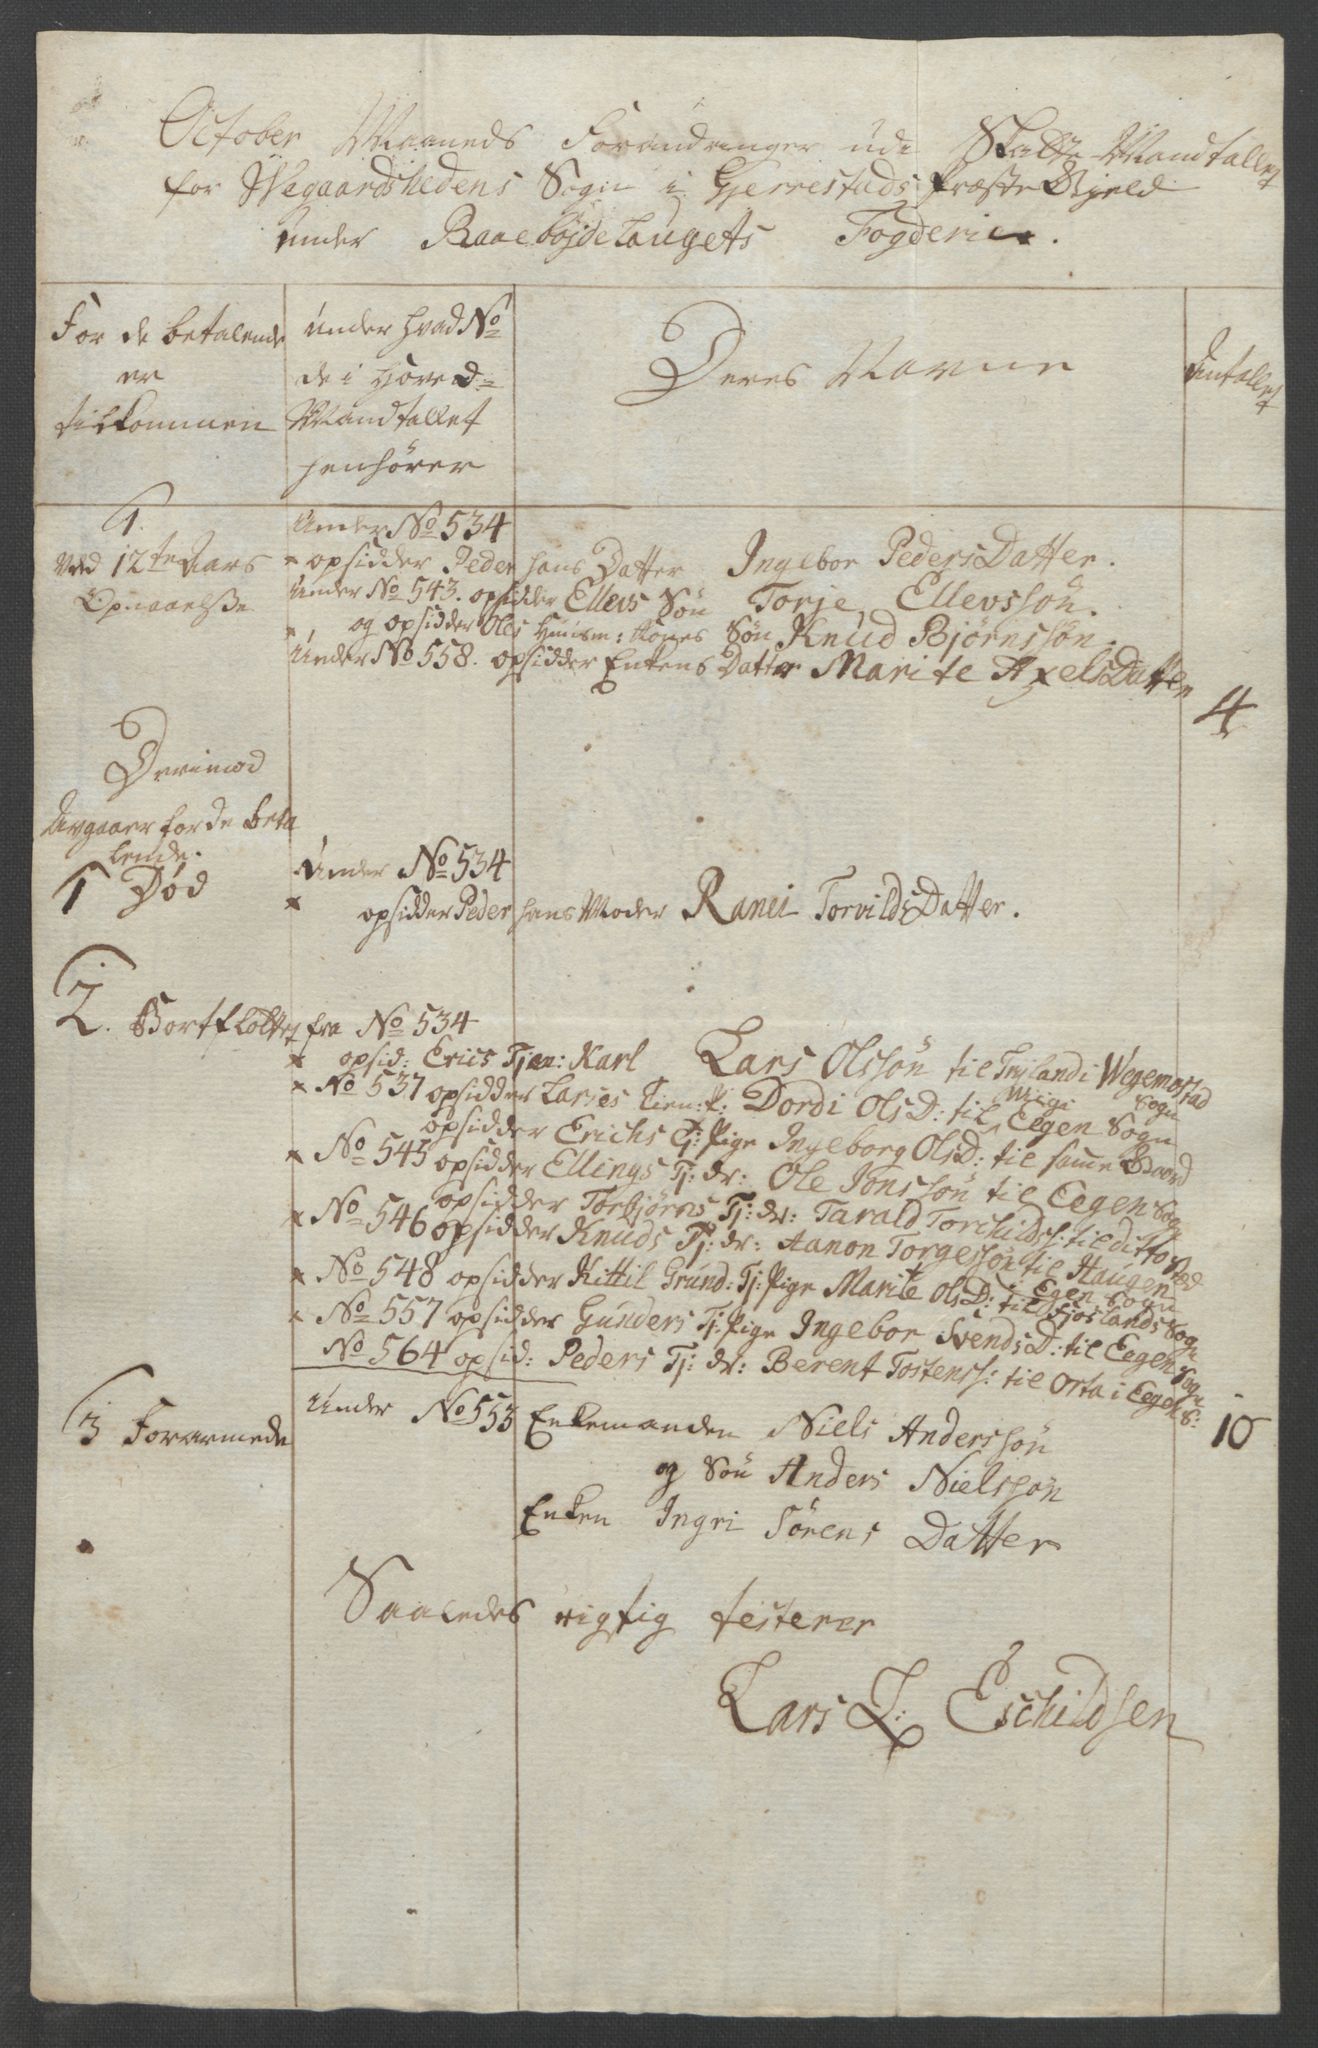 October Maaneds Forandringer udi Skatte Mandtallet
for Wegaardshedens Sogn i Gjerrestads Præste Gjeld
under Raaebøjdelaugets Fogderie.
For de betalende
er
tilkommen
under hvad No
de i Hoved-
Mandtallet
henhører
Deres Navne
Antallet
1.
Ved 12te Aars
Opnaaelsse
Under No 534
opsidder Peder hans Datter Ingebor PedersDatter.
Under No 543. opsidder Ellevs Søn Torje Ellevssøn.
og opsidder Oles Huusm: Kones Søn Knud Bjørnssøn.
Under No 558. opsidder Enkens Datter Marite AxelsDatter
4
Derimod
Avgaaer for de beta
lende.
1 Død
Under No 534
opsidder Peder hans Moder Ranei TorvildsDatter.
2. Bortfløttet fra No 534
opsid: Erics Tjen: Karl Lars Olssøn til Tryland i Wegemostad
Sogn
No 537 opsidder Larses Tien: P: Dordi OlsD: til Eegen Sogn
opsidder Erichs Tj: Pige Ingeborg OlsD: til samme Gaard
No 545 opsidder Ellings Tj: dr: Ole Jonssøn til Eegen Sogn
opsidder Torbjørns Tj: dr: Tarald Torchilds: til ditto Sted
No 546 opsidder Knuds Tj: dr: Aanon Torgessøn til Haugen
Egen Sogn
No 548 opsidder Kittil Grund: Tj: Pige Marite OlsD: til Fjoslands Sogn
No 557 opsidder Gunders Tj: Pige Ingebor SvendsD: til Eegen Sogn
No 564 opsid: Peders Tj: dr: Berent Tostenss: til Orta i Eegen S:
10
3 Forarmede
Under No 553 Enkemanden Niels Anderssøn
og Søn Anders Nielssøn
Enken Ingri Sørens Datter
Saaledes rigtig testerer
Lars L: Eschildsen